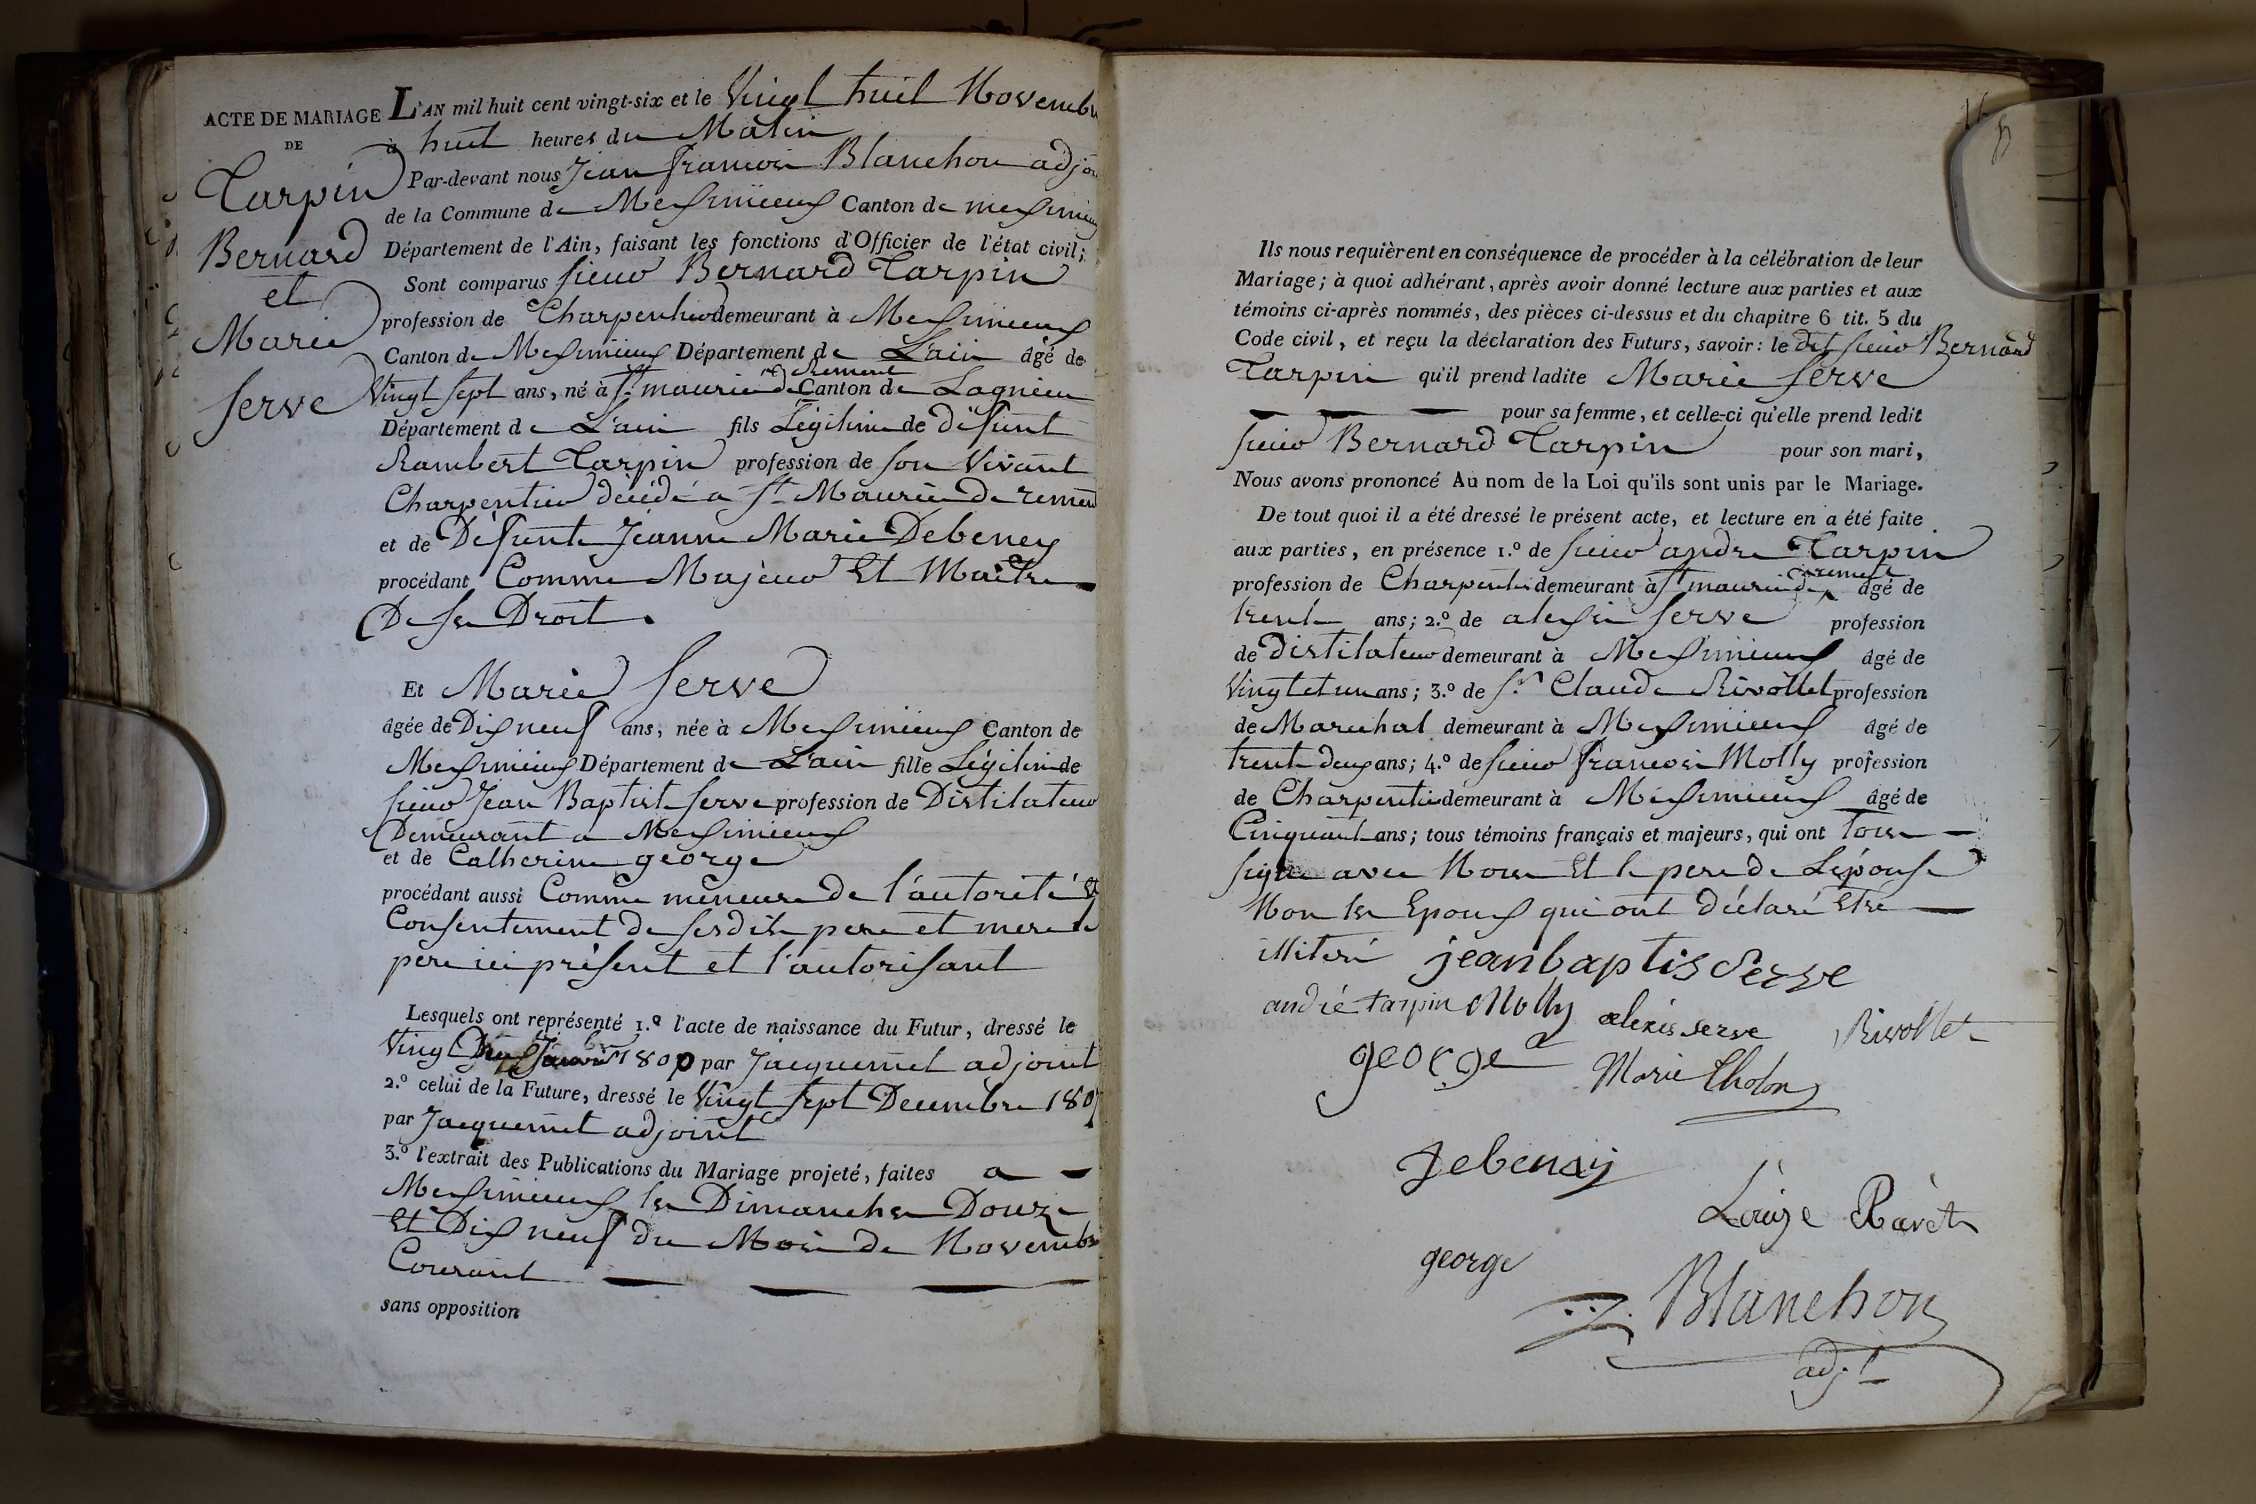 ACTE DE MARIAGE
DE
Tarpin
Bernard
et
Marie
Serve
L'AN mil huit cent vingt-six et le Vingt huit Novembr
à huit heures du Matin
Par-devant nous Jean francois Blanchon adjoi
de la Commune de Meximieux Canton de meximieux
Département de l'Ain, faisant les fonctions d'Officier de l'état civil;
Sont comparus sieur Bernard Tarpin
profession de Charpentier demeurant à Meximieux
Canton de Meximieux Département de L'ain âgé de
rement
Vingt sept ans, né à St maurice de Canton de Lagnieu
Département de L'ain fils Légitime de défunt
Rambert Tarpin profession de son Vivant
Charpentier décédé a St Maurice de remen
et de Défunte Jeanne Marie Debeney
procédant Comme Majeur Et Maitre
De ses Droits.
Et Marie Serve
âgée de Dix neuf ans, née à Meximieux Canton de
Meximieux Département de L'ain fille Légitime de
sieur Jean Baptiste Serve profession de Distilateur
Demeurant a Meximieux
et de Catherine george
procédant aussi Comme mineure de l'autorité Et
Consentement de sesdits pere et mere le
pere ici présent et l'autorisant
Lesquels ont représenté 1.º l'acte de naissance du Futur, dressé le
Vingt 180 par Jacquemet adjoint
2.º celui de la Future, dressé le Vingt Sept Decembre 1807
par Jacquemet adjoint
3.º l'extrait des Publications du Mariage projeté, faites a
Meximieux les Dimanches Douze
Et Dix neuf du Mois de Novembre
Courant
sans opposition
Ils nous requièrent en conséquence de procéder à la célébration de leur
Mariage; à quoi adhérant, après avoir donné lecture aux parties et aux
témoins ci-après nommés, des pièces ci-dessus et du chapitre 6 tit. 5 du
Code civil, et reçu la déclaration des Futurs, savoir: le dit sieur Bernard
Tarpin qu'il prend ladite Marie Serve
pour sa femme, et celle-ci qu'elle prend ledit
sieur Bernard Tarpin pour son mari,
Nous avons prononcé Au nom de la Loi qu'ils sont unis par le Mariage.
De tout quoi il a été dressé le présent acte, et lecture en a été faite
aux parties, en présence 1.º de sieur andre Tarpin
rement
profession de Charpentier demeurant à St maurice de âgé de
trente ans; 2.º de alexis Serve profession
de Distilateur demeurant à Meximieux âgé de
Vingt et un ans; 3.º de Sr Claude Rivollet profession
de Marechal demeurant à Meximieux âgé de
trente deux ans; 4.º de sieur francois Molly profession
de Charpentier demeurant à Meximieux âgé de
Cinquante ans; tous témoins français et majeurs, qui ont tous
signé avec Nous Et le pere de Lépouse
Non les Epoux qui ont déclaré Etre
illiteré jean baptis Serve
andré tarpin Molly alexis serve Rivollet
george Marie Cholon
Debenay
Louize Ravet
george
Blanchon
adjt